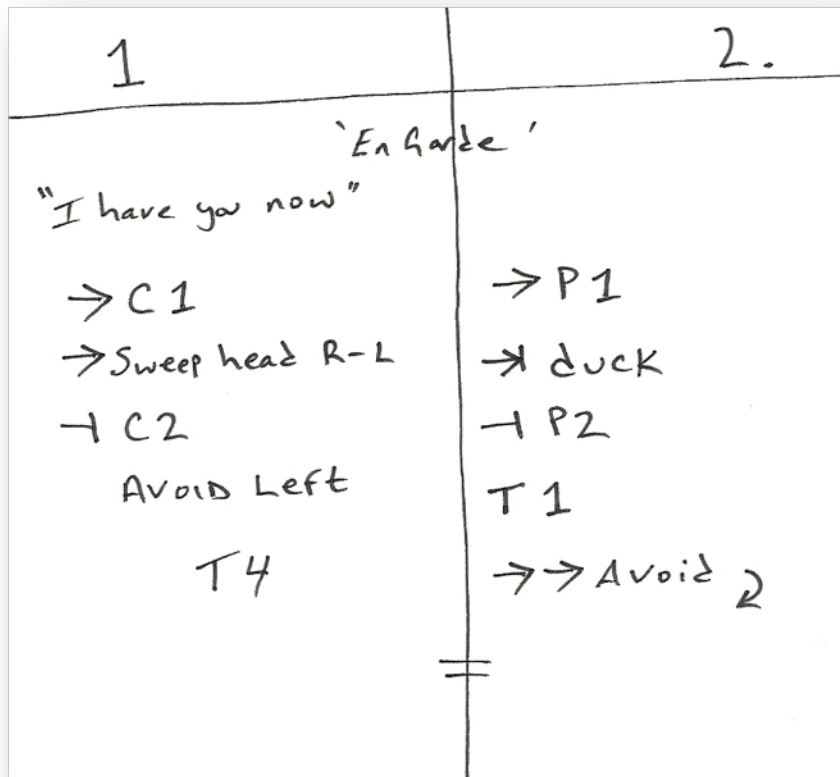 1 2.
'En Garde'
"I have you now"
→ C1 → P1
→ Sweep head R-L →| duck
⊣ C2 ⊣ P2
AVOID Left T1
T4 →→ Avoid ⤵